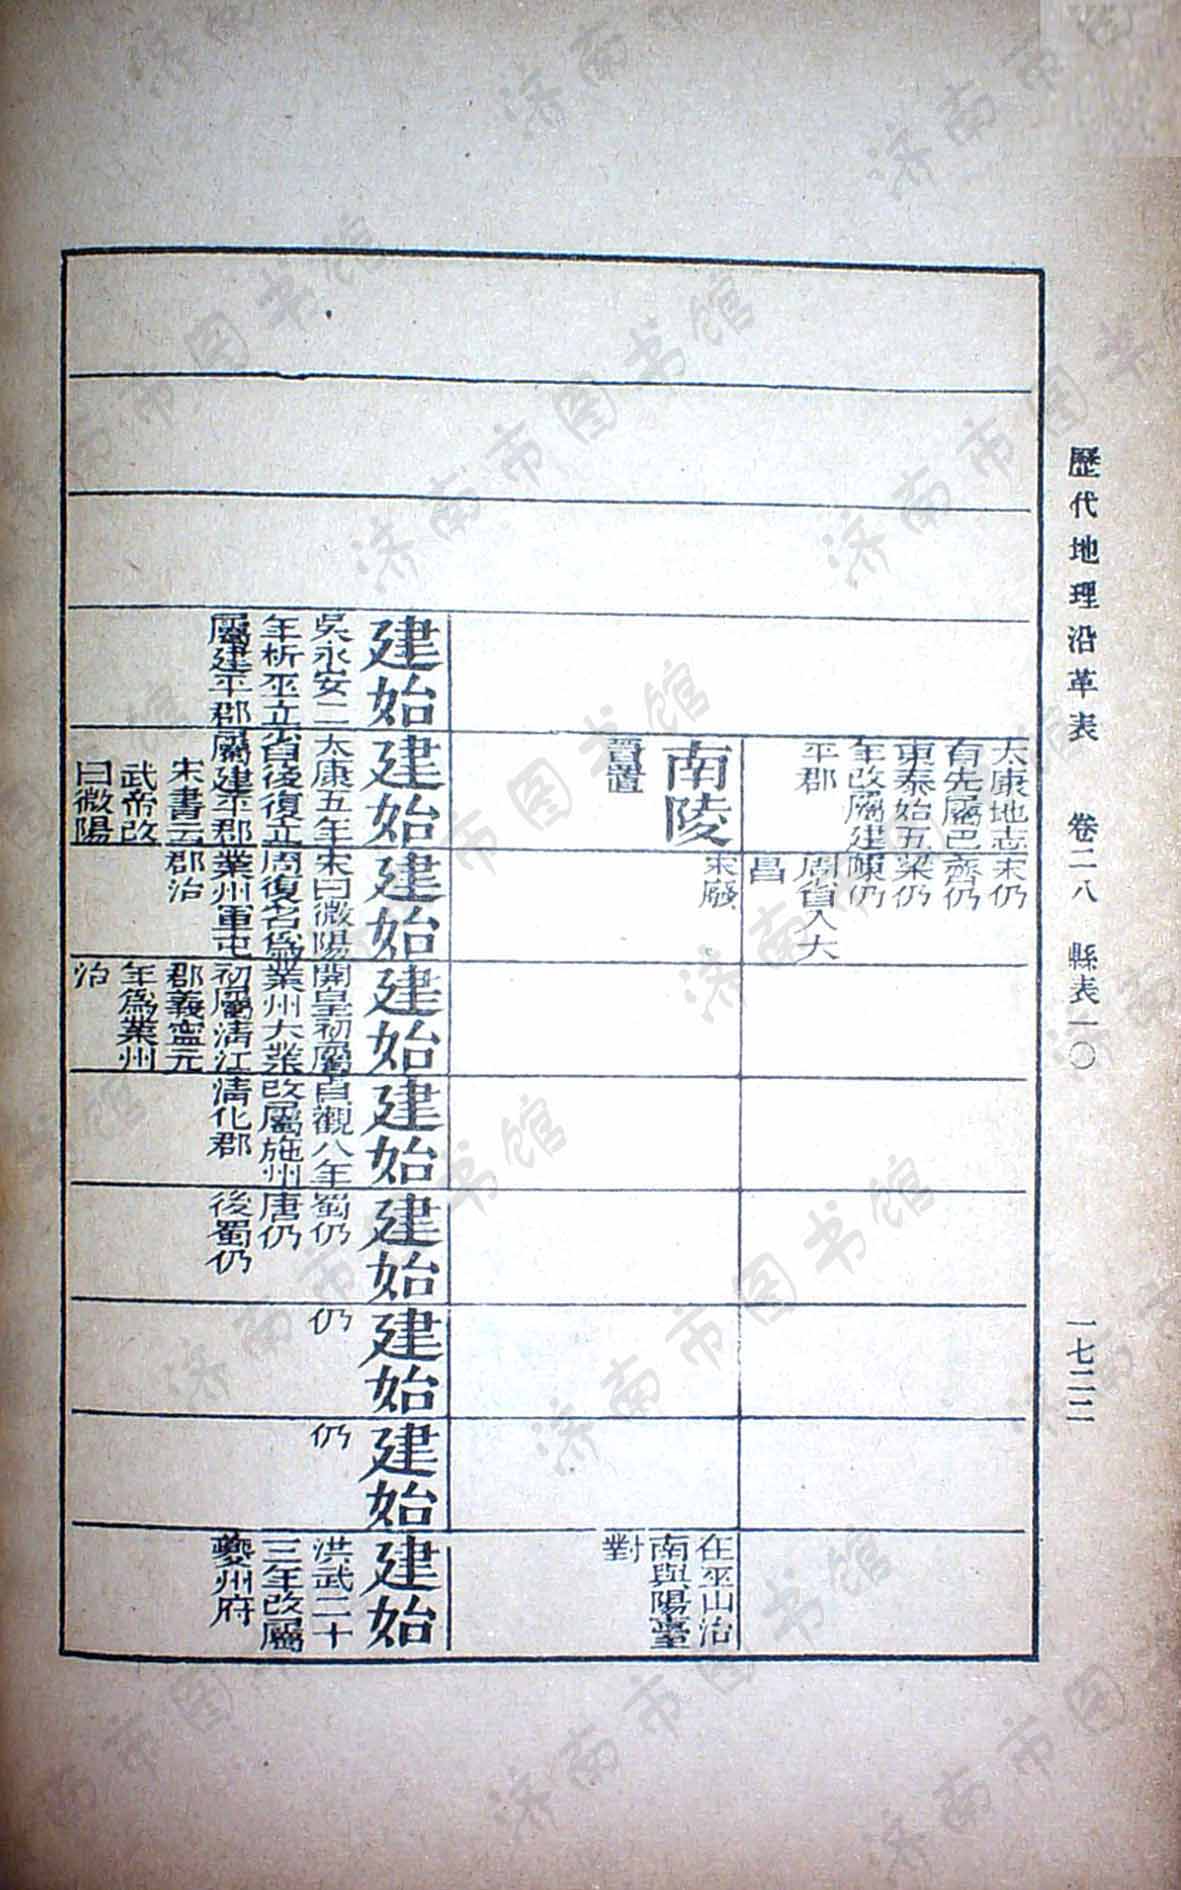 歷代地理沿革表 卷二八 縣表一〇 一七二二
太康地志
有先屬巴
東泰始五
年改屬建
平郡
宋仍
齊仍
梁仍
陳仍
周省入大
昌
南陵
晉置
宋廢
在巫山治
南與陽臺
對
建始
吳永安二
年析巫立
屬建平郡
建始
太康五年
省後復立
屬建平郡
宋書云
武帝改
曰微陽
建始
宋曰微陽
周復名為
業州軍屯
郡治
建始
開皇初屬
業州大業
初屬清江
郡義寧元
年為業州
治
建始
貞觀八年
改屬施州
清化郡
建始
蜀仍
唐仍
後蜀仍
建始
仍
建始
仍
建始
洪武二十
三年改屬
夔州府
济南市图书馆